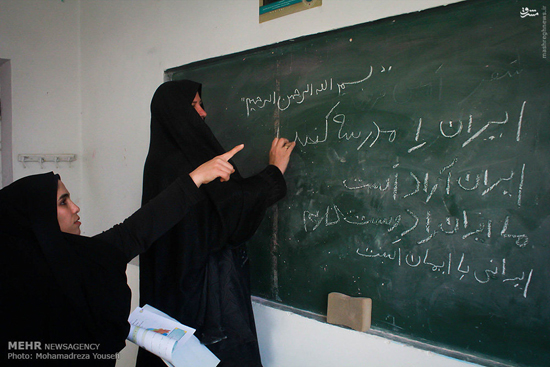 مشرق
mashreghnews.ir
"بسم الله الرحمن الرحیم"
ایران را مدرسه
ایران آزاد است
ما ایران را دوست داریم
ایرانی با ایمان است
MEHR NEWSAGENCY
Photo: Mohamadreza